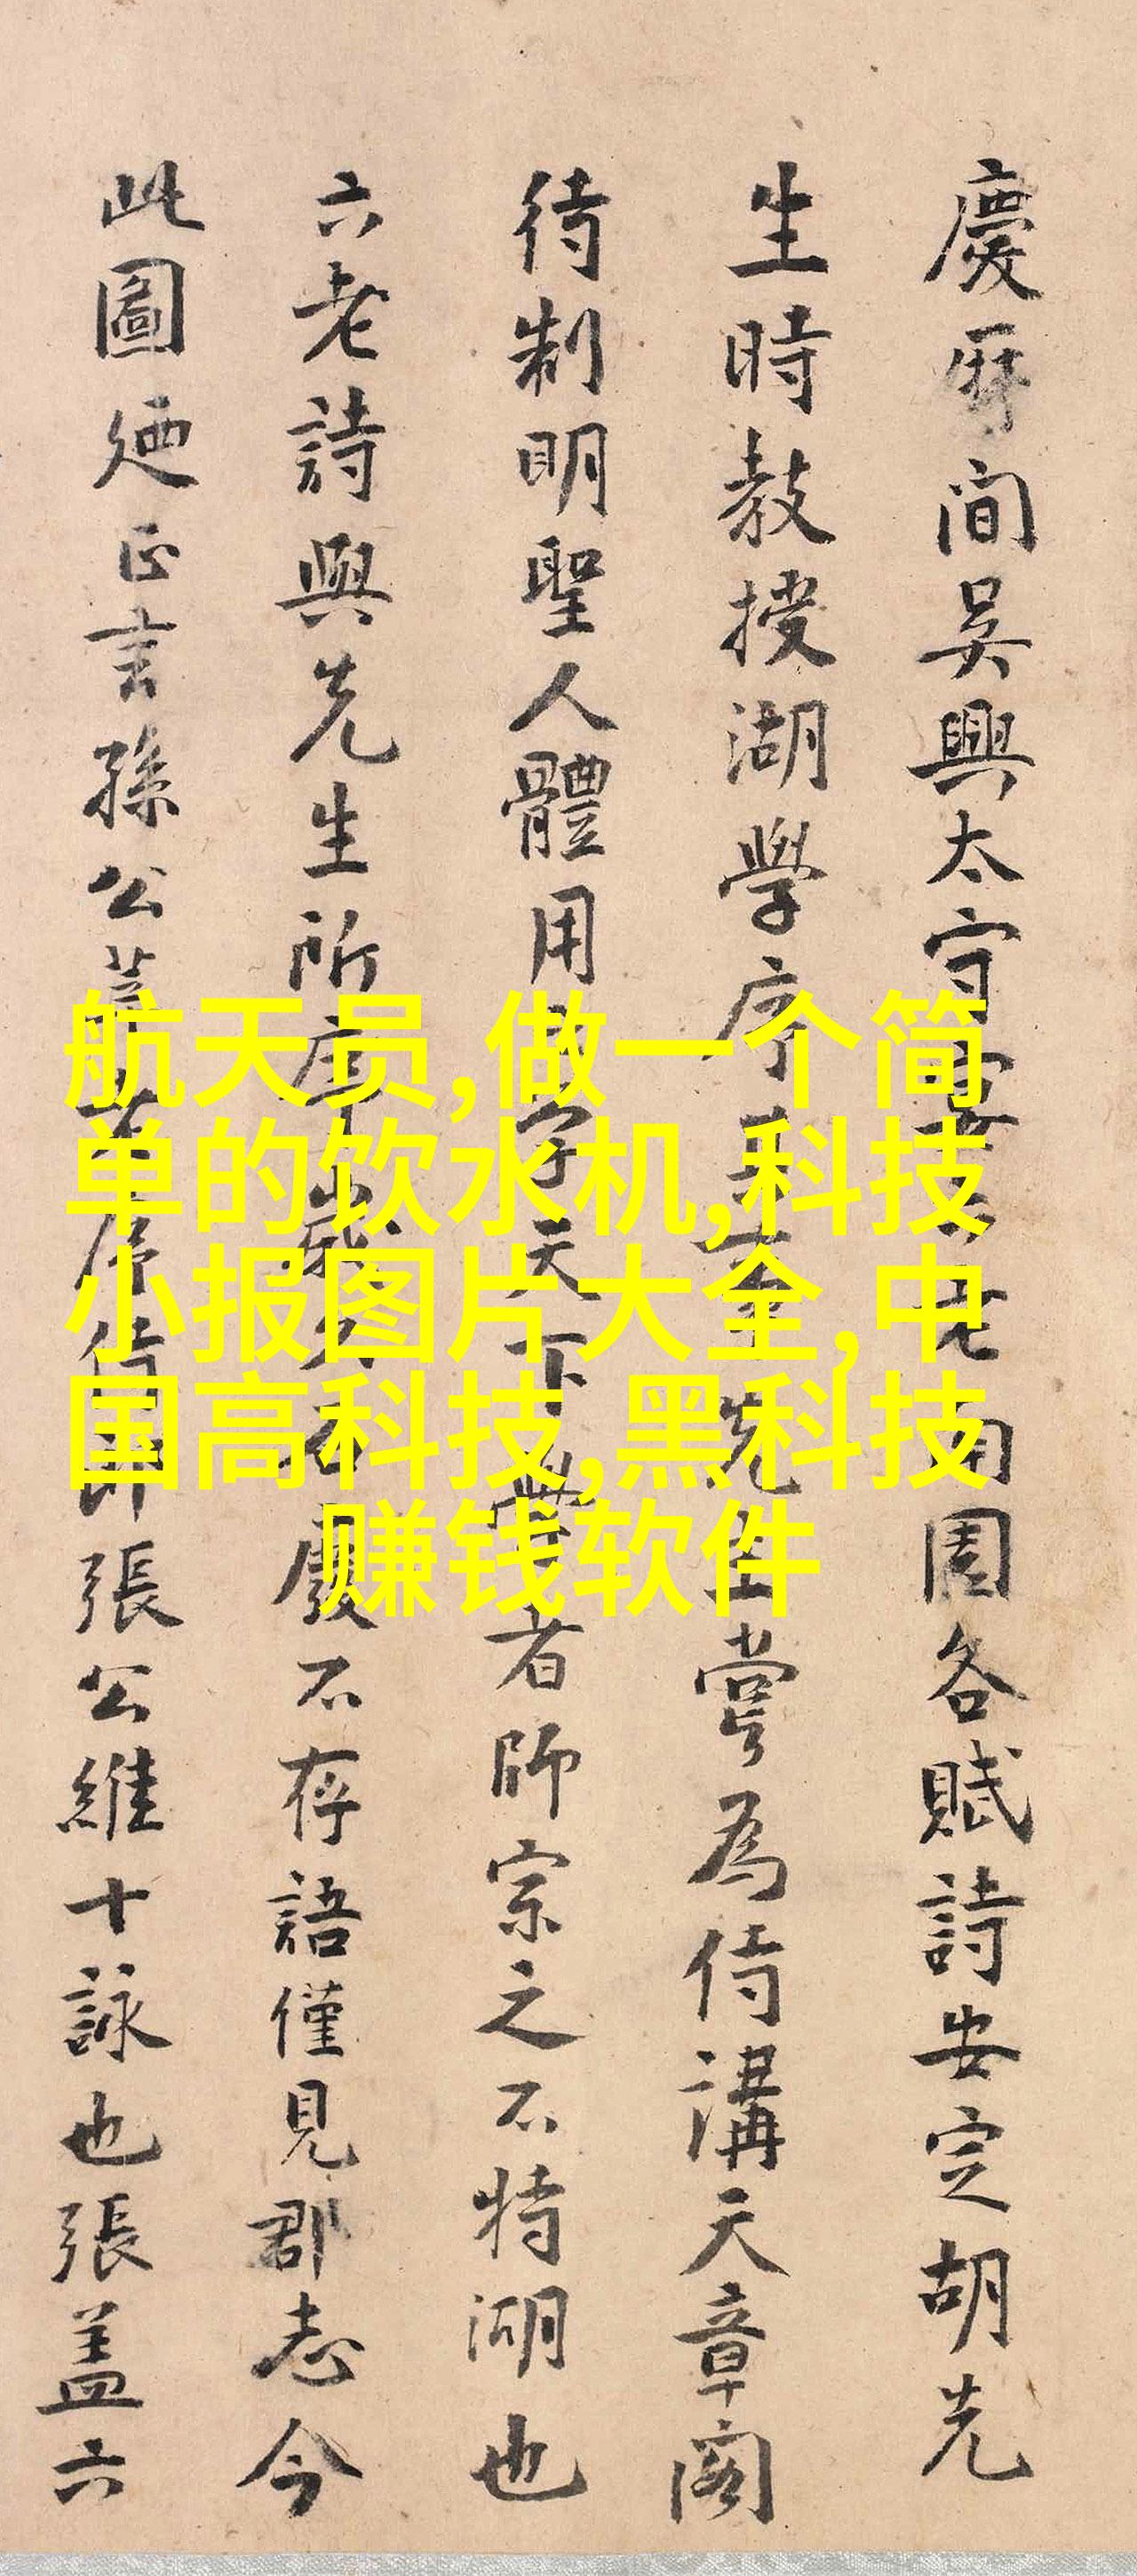 慶厯间吴興太守宴六老南園各賦詩安定胡先
生時教授湖學序其事先生嘗為侍講天章閣
待制明聖人體用教天下學者師宗之不特湖也
六老詩與先生所序石廢不存語僅見郡志今
此圖廼正言孫公侍郎張公維十詠也張蓋六
航天员,做一个简
单的饮水机,科技
小报图片大全,中
国高科技,黑科技
赚钱软件